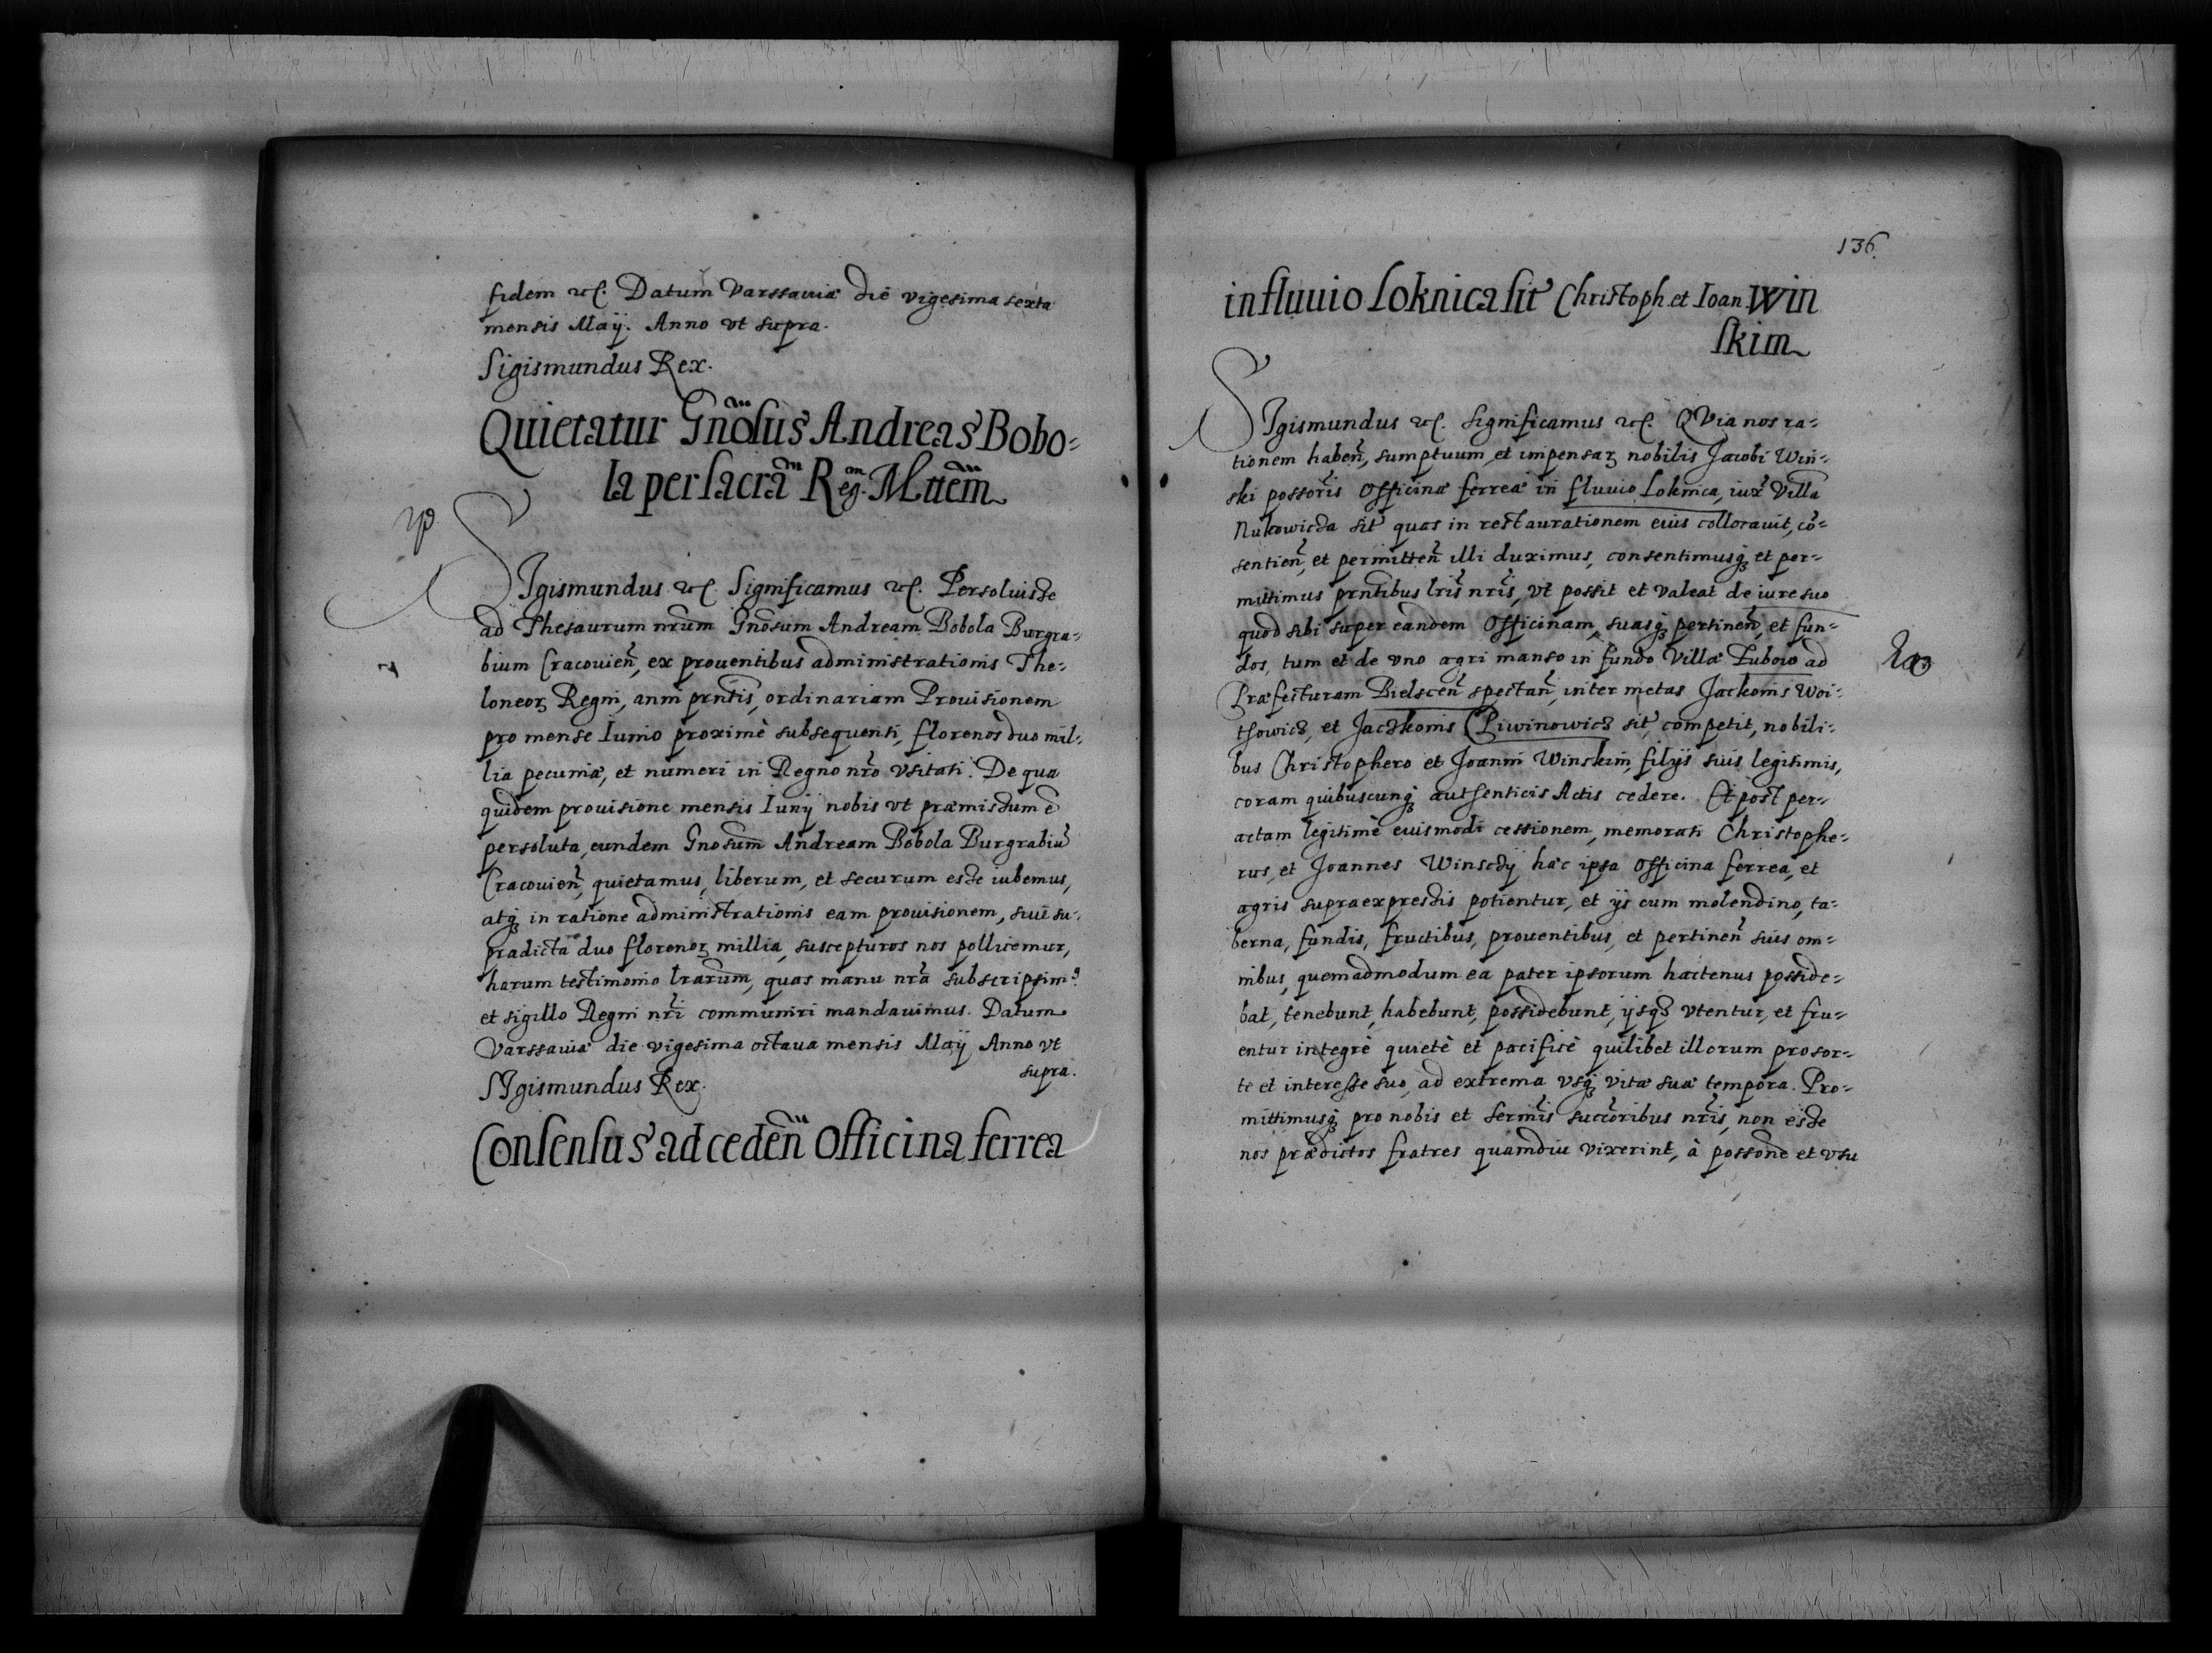 fidem etc. Datum Varssauiæ die vigesima sexta
mensis Maÿ. Anno vt supra.
Sigismundus Rex.
Quietatur Gnosus Andreas Bobo-
la per sacrā Reg. Mttem
SIgismundus etc. Significamus etc. Persoluisse
ad Thesaurum nrum Gnosum Andream Bobola Burgra-
bium Cracouien, ex prouentibus administrationis The-
loneoꝝ Regni, anni prntis, ordinariam Prouisionem
pro mense Iunio proximè subsequenti, florenos duo mil-
lia pecuniæ, et numeri in Regno nro vsitati. De qua
quidem prouisione mensis Iunij nobis vt præmissum ē
persoluta, eundem Gnosum Andream Bobola Burgrabiū
Cracouien, quietamus, liberum, et securum esse iubemus,
atqꝫ in ratione administrationis eam prouisionem, siue su-
pradicta duo florenoꝝ millia, suscepturos nos pollicemur,
harum testimonio lrarum, quas manu nra subscripsimꝰ
et sigillo Regni nri communiri mandauimus. Datum
Varssauiæ die vigesima octaua mensis Maÿ Anno vt
supra.
SIgismundus Rex.
Consensus ad ceden Officina ferrea
136.
in fluuio Loknica sit Christoph. et Ioan. Win
skim
SIgismundus etc. Significamus etc. QVia nos ra-
tionem haben, sumptuum et impensaꝝ nobilis Jacobi Win-
ski possoris Officinæ ferreæ in fluuio Loknica, iux Villā
Nukowicza sit quas in restaurationem eius collocauit, cō-
sentien, et permitten illi duximus, consentimusqꝫ et per-
mittimus prntibus lris nris, vt possit et valeat de iure suo
quod sibi super eandem Officinam, suasqꝫ pertinen, et fun-
dos, tum et de vno agri manso in fundo Villæ Lubowo ad
Præfecturam Bielscen spectan, inter metas Jackonis Woi-
thowicz, et Jaczkonis Piwinowicz sit competit, nobili-
bus Christophero et Joanni Winskim, filijs suis legitimis,
coram quibuscunqꝫ authenticis Actis cedere. Et post per-
actam legitimè eiusmodi cessionem, memorati Christophe-
rus, et Joannes Winscÿ hac ipsa Officina ferrea, et
agris supraexpressis potientur, et ijs cum molendino, ta-
berna, fundis, fructibus, prouentibus, et pertinen suis om-
nibus, quemadmodum ea pater ipsorum hactenus posside-
bat, tenebunt, habebunt, possidebunt, ijsqꝫ vtentur, et fru-
entur integrè quietè et pacificè quilibet illorum pro sor-
te et interesse suo, ad extrema vsqꝫ vitæ suæ tempora. Pro-
mittimusqꝫ pro nobis et Sermis succoribus nris, non esse
nos prædictos fratres quamdiu vixerint, à possone et vsu